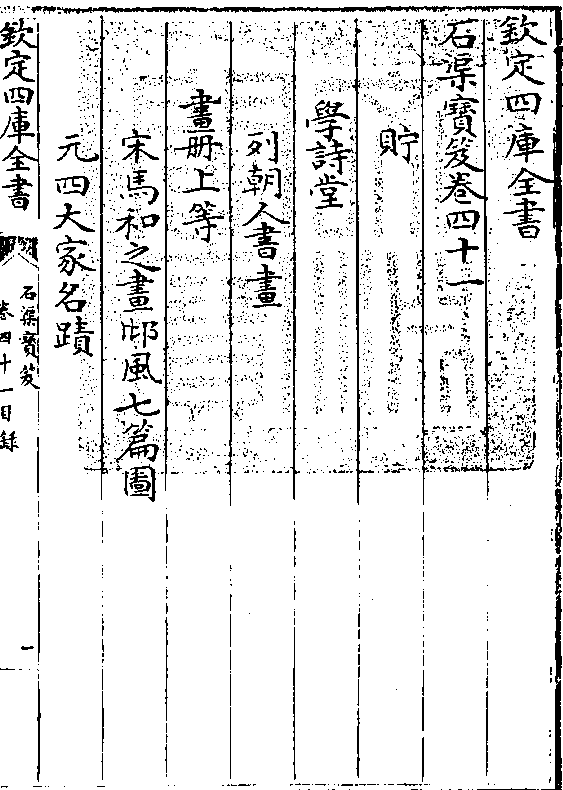 欽定四庫全書
石渠寶笈卷四十一
貯
學詩堂
列朝人書畫
畫册上等
宋馬和之畫邶風七篇圖
元四大家名蹟
欽定四庫全書
石渠寶笈
卷四十一目錄
一